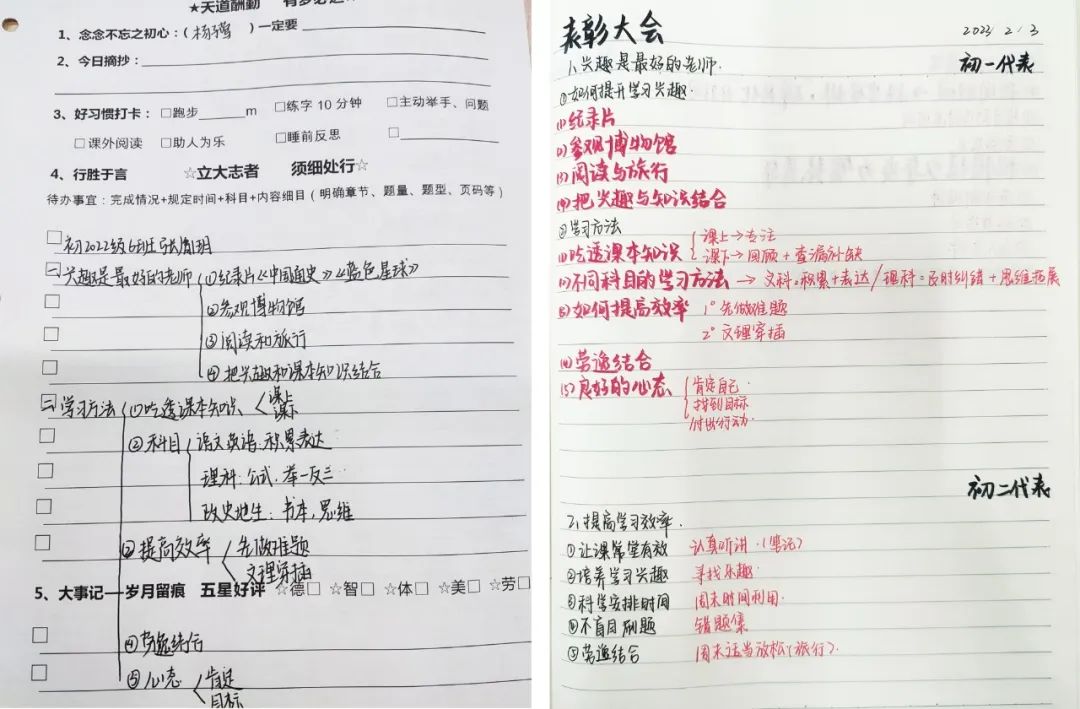 ★天道酬勤
1、念念不忘之初心:( )一定要
2、今日摘抄:
3、好习惯打卡: □跑步 m □练字 10 分钟 □主动举手、问题
□课外阅读 □助人为乐 □睡前反思 □
4、行胜于言 ☆立大志者 须细处行☆
待办事宜:完成情况+规定时间+科目+内容细目(明确章节、题量、题型、页码等)
初2022级6班
一 兴趣是最好的老师 ①纪录片《中国通史》《蓝色星球》
②参观博物馆
③阅读和旅行
④把兴趣和课本知识结合
二 学习方法 ①吃透课本知识 课上
课下
②科目 语文英语:积累表达
理科:公式,举一反三
政史地生:书本,思维
③提高效率 先做难题
文理穿插
5、大事记—岁月留痕 五星好评 ☆德□ ☆智□ ☆体□ ☆美□ ☆劳□
④劳逸结合
⑤心态 肯定
目标
表彰大会 2023 2/3
1、兴趣是最好的老师. 初一代表
①如何提升学习兴趣
(1)纪录片
(2)参观博物馆
(3)阅读与旅行
(4)把兴趣与知识结合
②学习方法
(1)吃透课本知识 课上→专注
课下→回顾+查漏补缺
(2)不同科目的学习方法 → 文科:积累+表达/理科:及时纠错+思维拓展
(3)如何提高效率 1°先做难题
2°文理穿插
(4)劳逸结合
(5)良好的心态 肯定自己
找到目标
付出行动
初二代表
2、提高学习效率.
①让课常堂有效 认真听讲.(笔记)
②培养学习兴趣 寻找乐趣.
③科学安排时间 周末时间利用.
④不盲目刷题 错题集
⑤劳逸结合 周末适当放松(旅行).